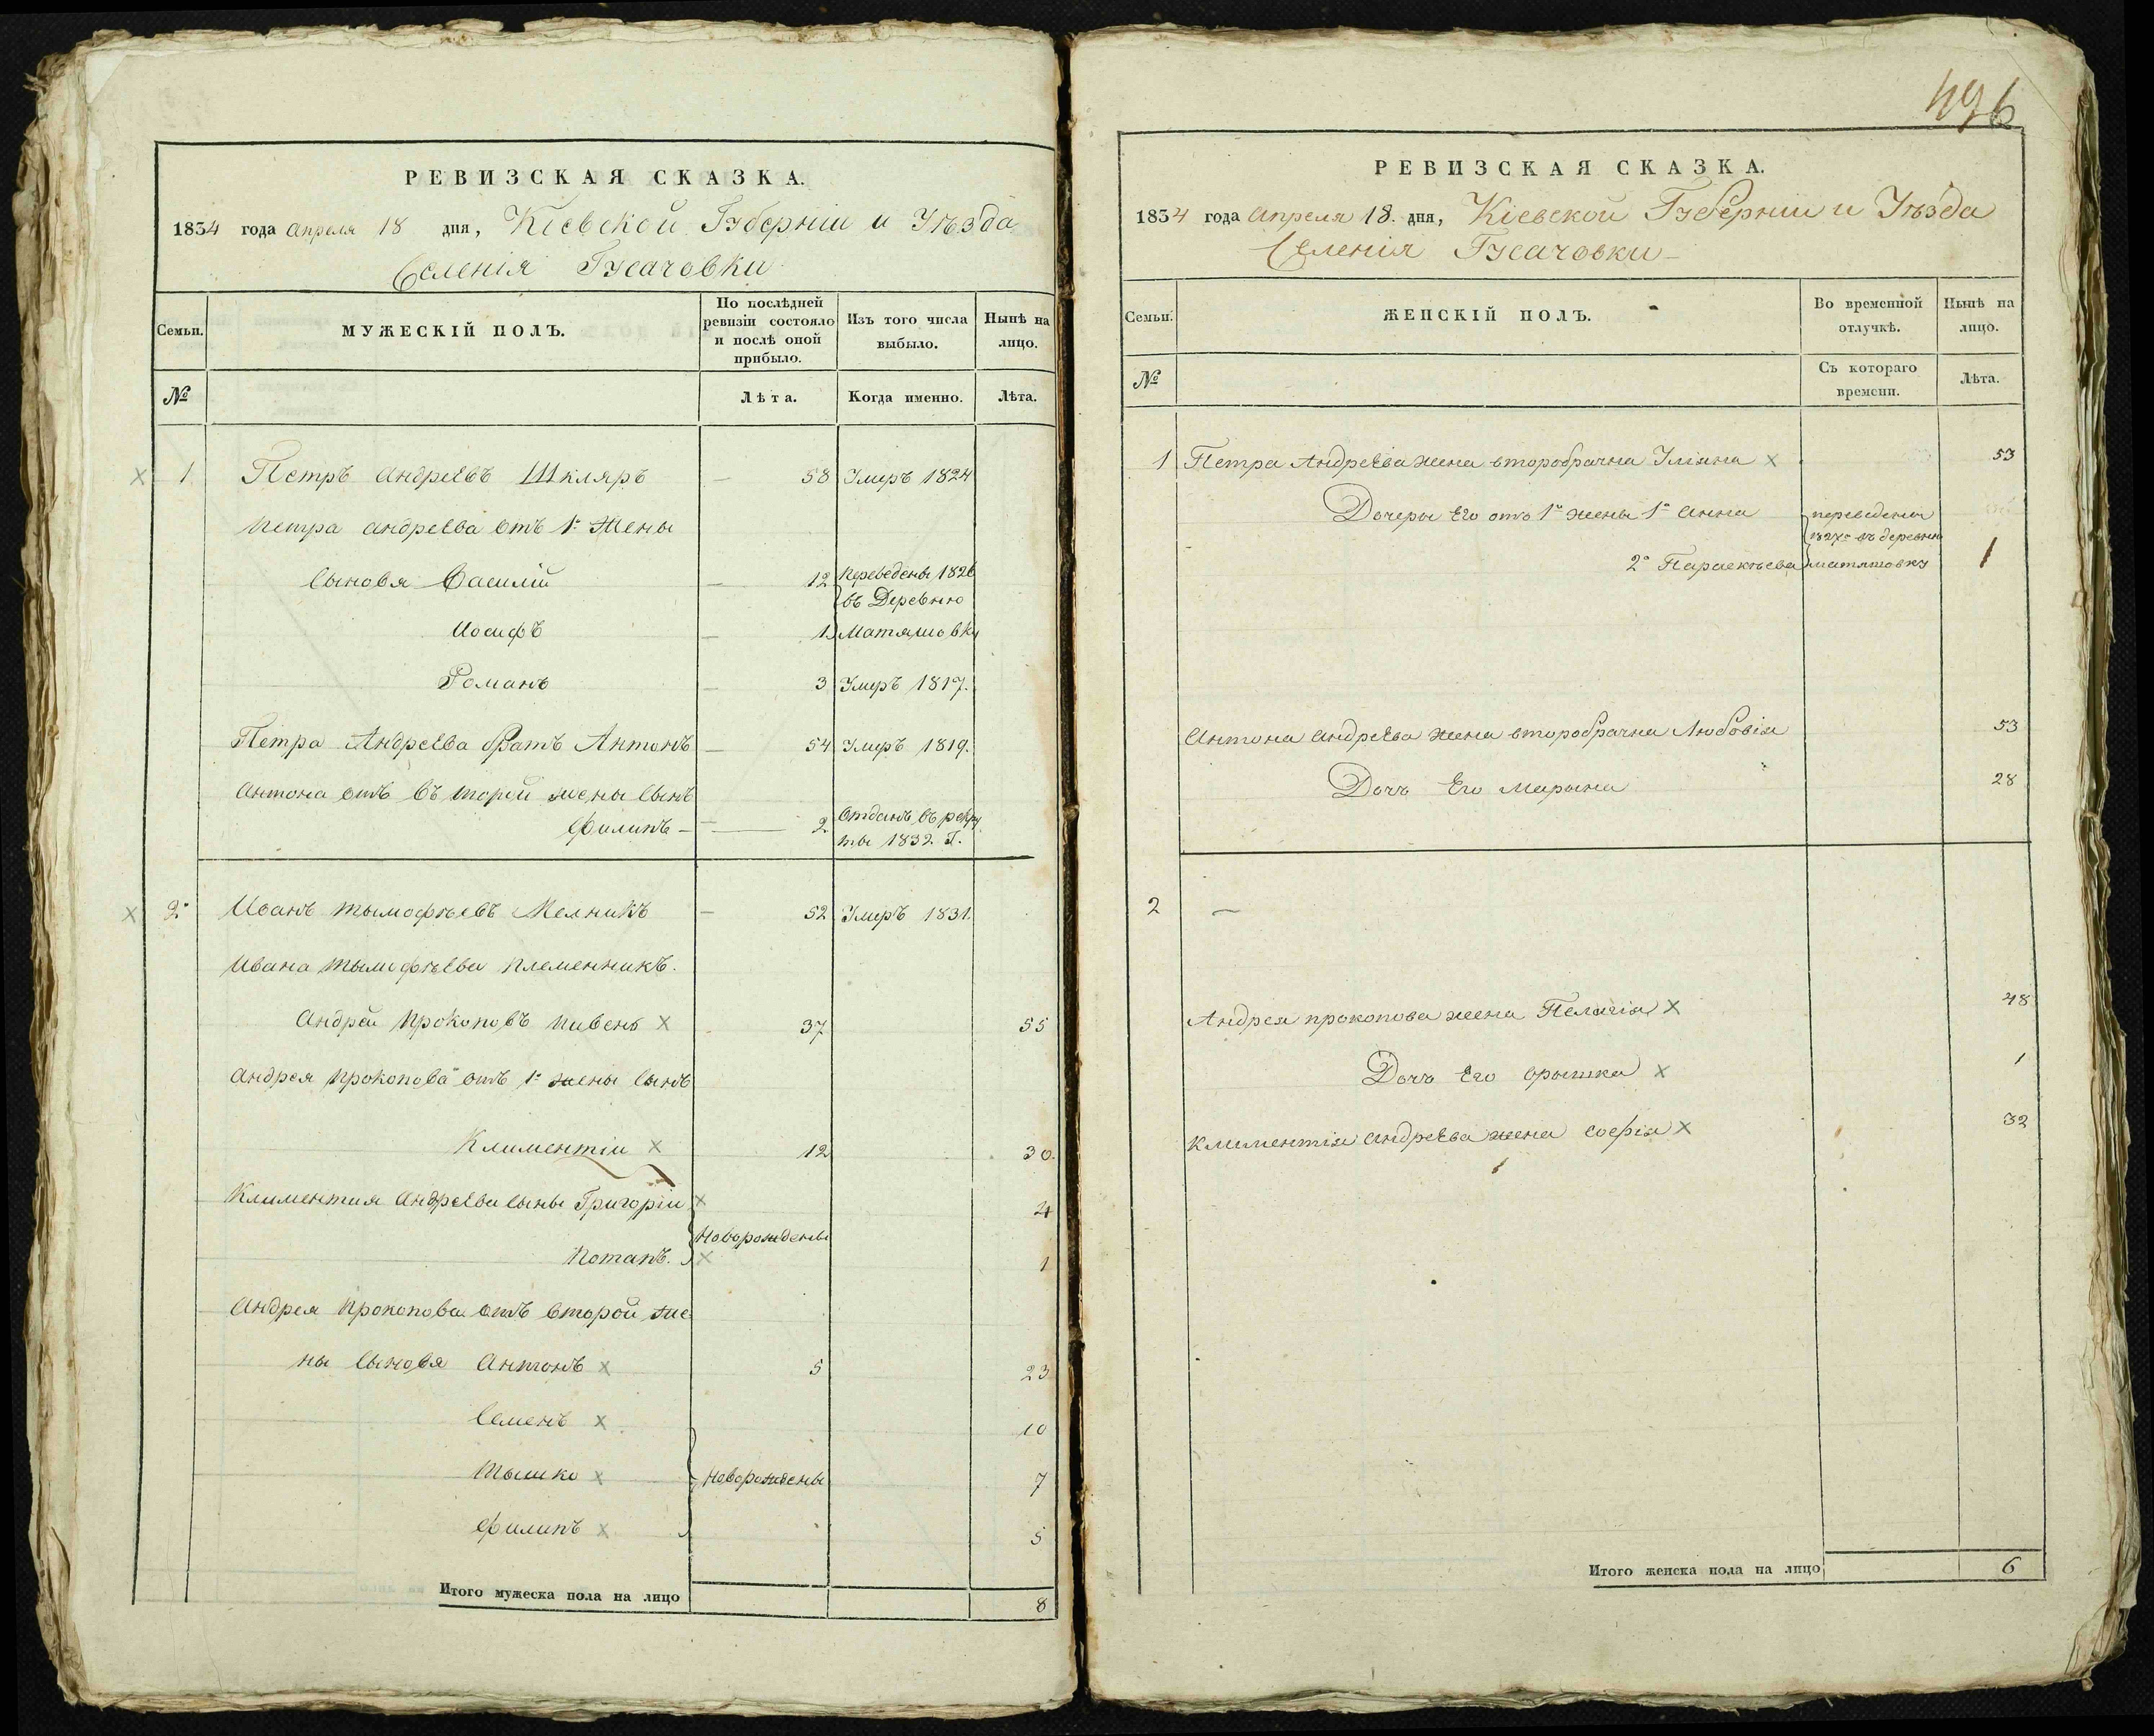 РЕВИЗСКАЯ СКАЗКА.
1834 года Апреля 18 дня, Кіевской Губерніи и Уѣзда
Селенія Гусачовки
Семьи.
МУЖЕСКІЙ ПОЛЪ.
По послѣдней ревизіи состояло и послѣ оной прибыло.
Изъ того числа выбыло.
Нынѣ на лицо.
№
Лѣта.
Когда именно.
Лѣта.
1 Петръ Андреевъ Шкляръ — 58 Умеръ 1824
Петра Андреева отъ 1й Жены
Сыновя Василій — 12 Переведены 1826
въ Деревню
Иосифъ — 1 Матяшовку
Романъ — 3 Умеръ 1817.
Петра Андреева братъ Антонъ — 54 Умеръ 1819.
Антона отъ въторой жены Сынъ
Филипъ — 2 Отданъ въ рекру
ты 1832. Г.
2 Иванъ Тымофѣевъ Мелникъ — 52 Умеръ 1831.
Ивана Тымофѣева племенникъ.
Андрей Прокоповъ Пивень × 37 55
Андрея Прокопова отъ 1й жены Сынъ
Климентіи × 12 30.
Климентия Андреева сыны Григоріи × 4
Новорождены
Потапъ. × 1
Андрея Прокопова отъ второй же
ны Сыновя Антонъ × 5 23
Семенъ × 10
Тышко × Новорождены 7
Филипъ × 5
Итого мужеска пола на лицо 8
496
РЕВИЗСКАЯ СКАЗКА.
1834 года Апреля 18. дня, Кіевской Губерніи и Уѣзда
Селенія Гусачовки
Семьи.
ЖЕНСКІЙ ПОЛЪ.
Во временной отлучкѣ.
Нынѣ на лицо.
№
Съ котораго времени.
Лѣта.
1 Петра Андреева жена второбрачна Уліяна × 53
Дочеры Его отъ 1й жены 1я Анна переведени
1827го въ деревню
2я Параскѣева матяшовку 1
Антона Андреева жена второбрачна Любовія 53
Дочъ Его Марына 28
2 —
Андрея прокопова жена Пелагія × 48
Дочъ Его Орышка × 1
Климентія Андреева жена Софія × 32
Итого женска пола на лицо 6